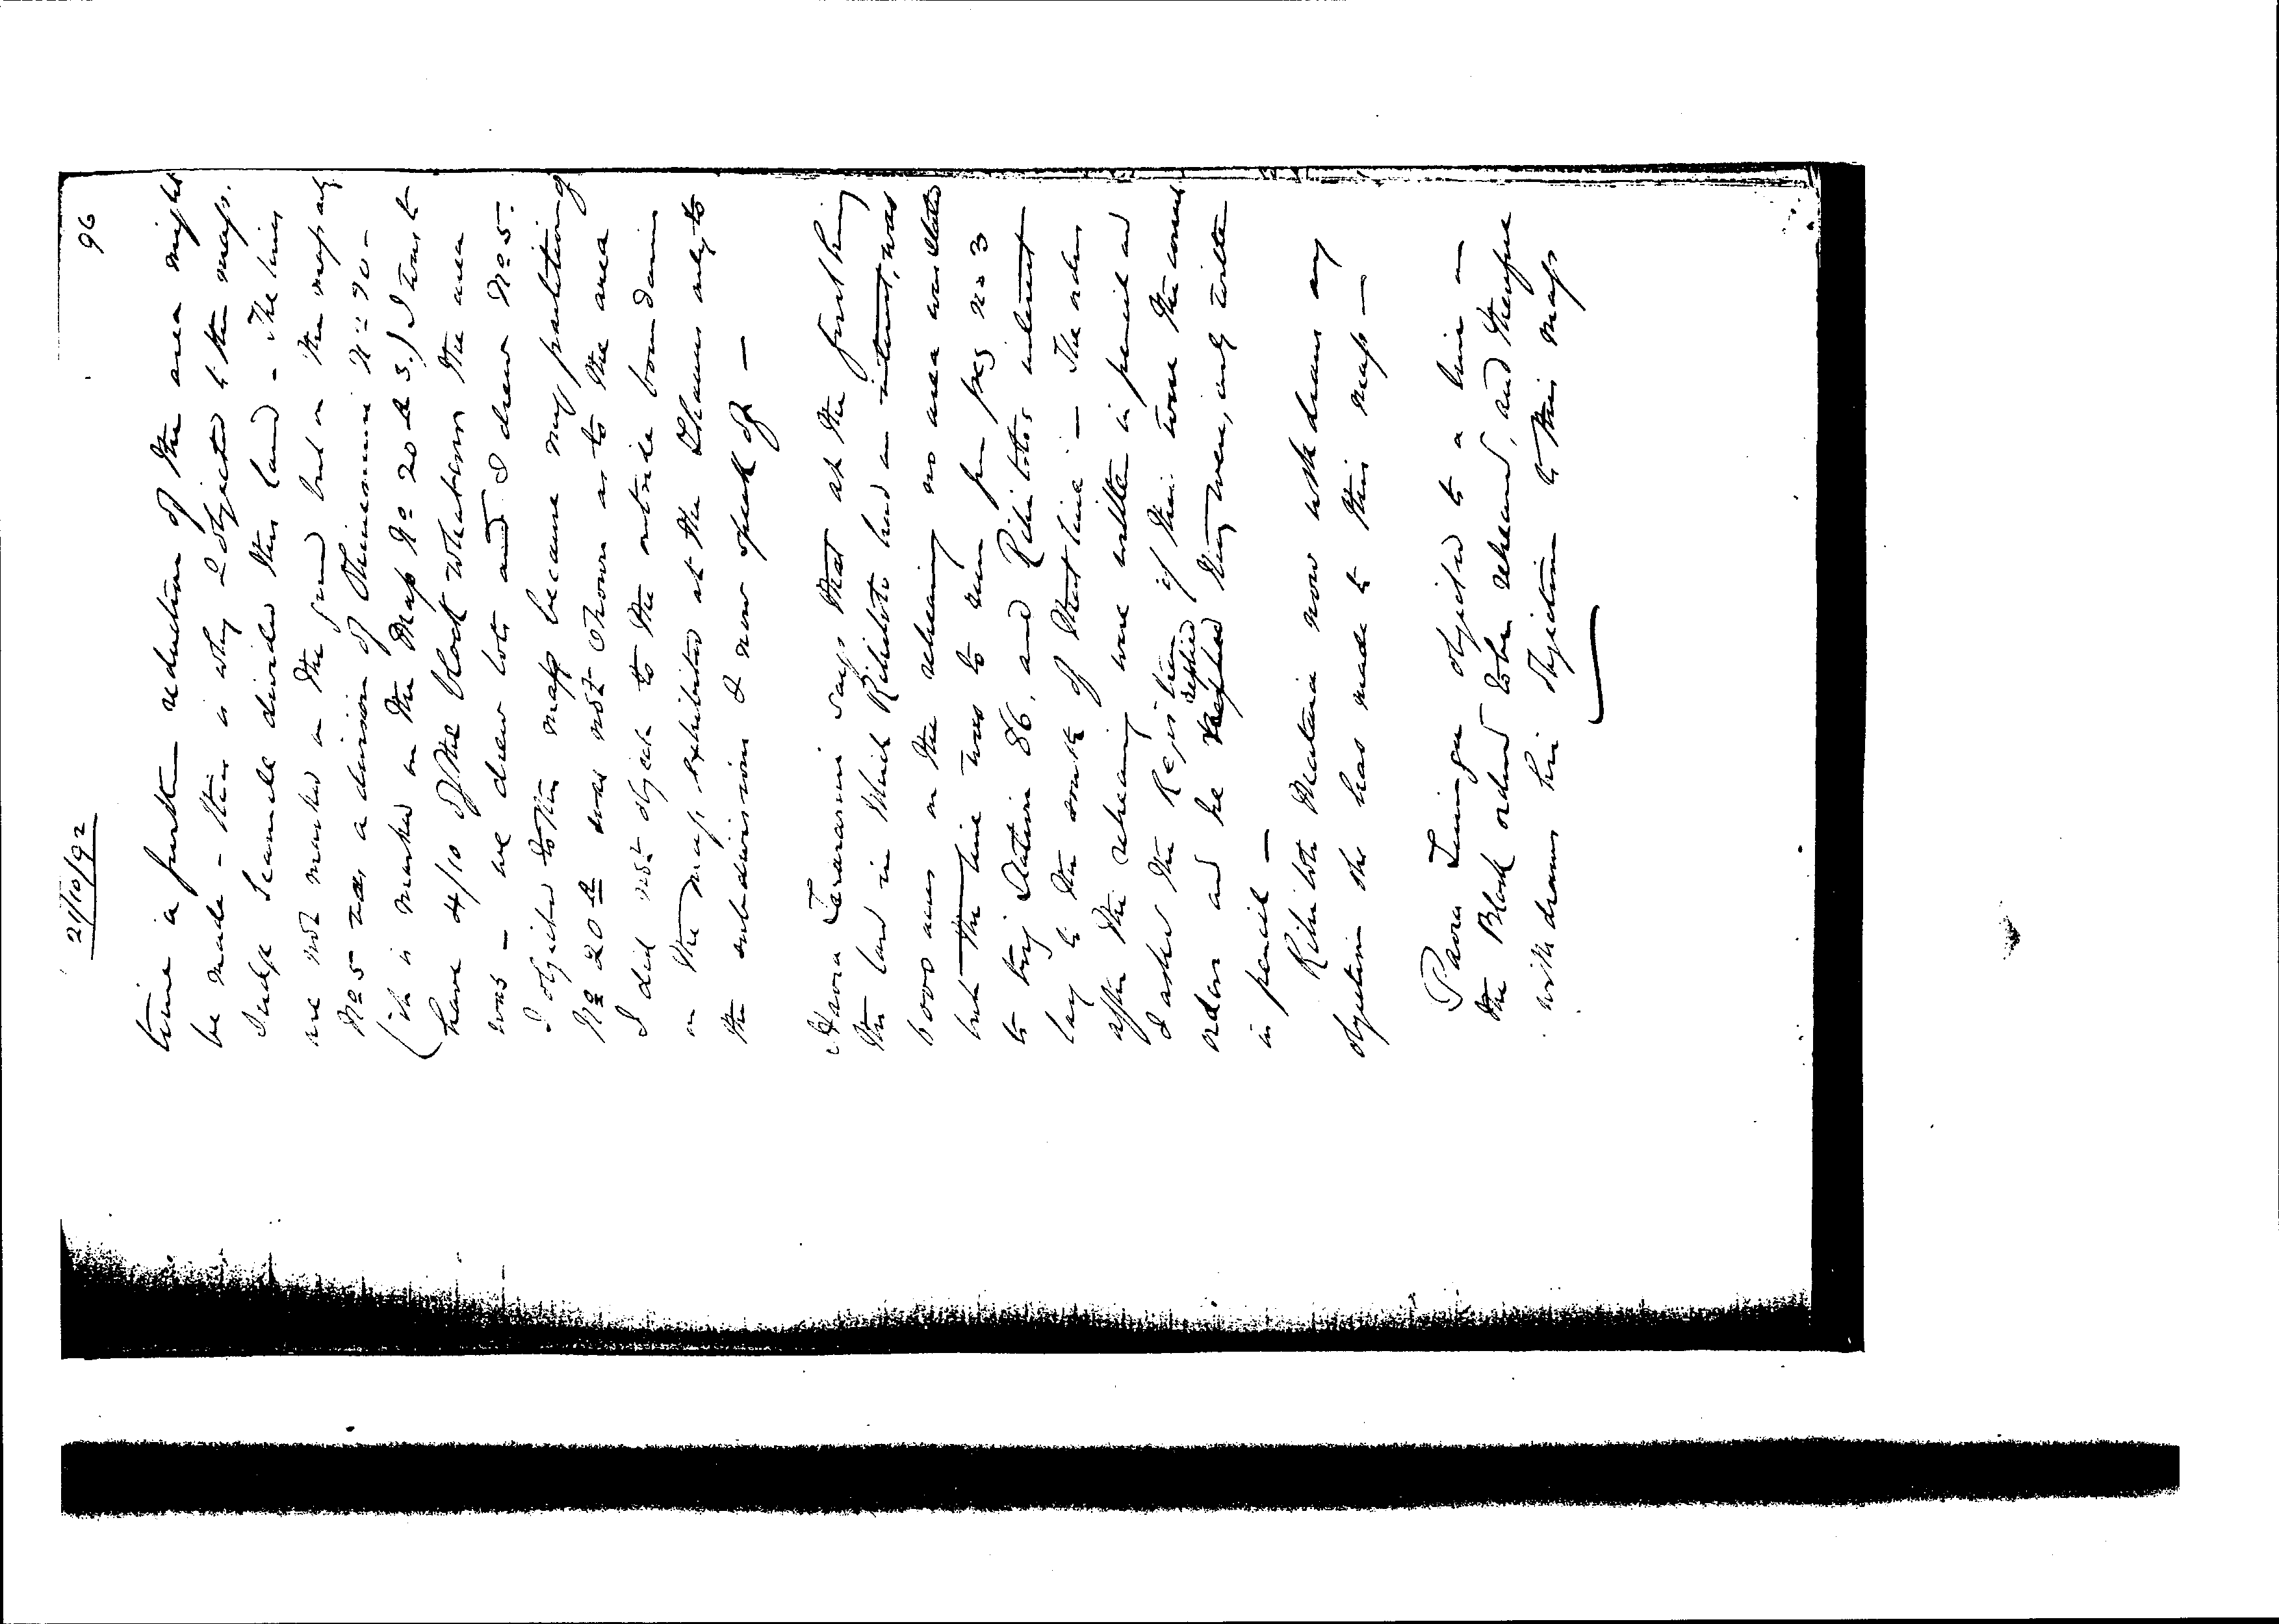 21/10/92
96
time a further reduction of the area might
be made - this is why I objected to the map.
Judge Scannell divided this land - The lines
are not marked on the ground but on the map only
No 5 was a division of No 20 -
(it is marked on the Map No 20 A 3.) I was to
have 4/10 of the block whatever the area
was - we drew lots and I drew No 5.
I objected to this map because my partitioning
No 20 A was not shown as to the area
I did not object to the outside boundaries
on the map exhibited at the Thames only to
the subdivision I now speak of -
says that at the first hearing
the land in which Rihitoto had an interest, was
6000 acres on the rehearing no area was stated
but the line was to run from peg no 3
to trig Station 86, and Rihitoto's interest
lay to the south of that line - The orders
after the rehearing were written in pencil and
I asked the Registrar if these were the correct
orders and he replied they were, only written
in pencil -
Rihitoto Mataia now withdraws any
objection she has made to this map -
Paora Tiunga objected to a line in
the Block ordered to be reheard, and therefore
withdraws his objection to this map